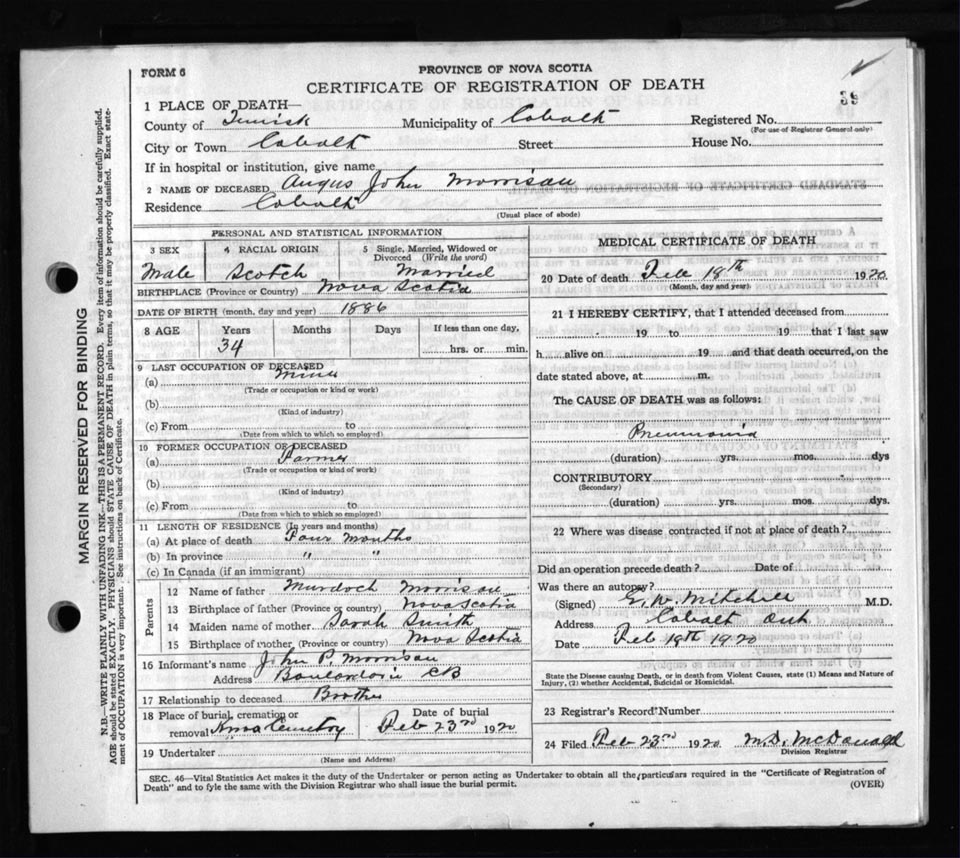 FORM 6
PROVINCE OF NOVA SCOTIA
CERTIFICATE OF REGISTRATION OF DEATH
39
1 PLACE OF DEATH—
County of Municipality of Cobalt Registered No.
(For use of Registrar General only)
City or Town Cobalt Street House No.
If in hospital or institution, give name
2 NAME OF DECEASED Angus John Morrison
Residence Cobalt
(Usual place of abode)
PERSONAL AND STATISTICAL INFORMATION
3 SEX 4 RACIAL ORIGIN 5 Single, Married, Widowed or Divorced (Write the word)
Male Scotch Married
BIRTHPLACE (Province or Country) Nova Scotia
DATE OF BIRTH (month, day and year) 1886
8 AGE Years Months Days If less than one day,
34 hrs. or min.
9 LAST OCCUPATION OF DECEASED
(a) Miner
(Trade or occupation or kind of work)
(b)
(Kind of industry)
(c) From to
(Date from which to which so employed)
10 FORMER OCCUPATION OF DECEASED
(a) Farmer
(Trade or occupation or kind of work)
(b)
(Kind of industry)
(c) From to
(Date from which to which so employed)
11 LENGTH OF RESIDENCE (In years and months)
(a) At place of death Four Months
(b) In province " "
(c) In Canada (if an immigrant)
Parents
12 Name of father Murdoch Morrison
13 Birthplace of father (Province or country) Nova Scotia
14 Maiden name of mother Sarah Smith
15 Birthplace of mother (Province or country) Nova Scotia
16 Informant's name John P. Morrison
Address CB
17 Relationship to deceased Brother
18 Place of burial, cremation or removal Cemetry Date of burial Feb 23rd 1920
19 Undertaker
(Name and Address)
MEDICAL CERTIFICATE OF DEATH
20 Date of death Feb 18th 1920
(Month, day and year)
21 I HEREBY CERTIFY, that I attended deceased from
19 to 19 that I last saw
h alive on 19 and that death occurred, on the
date stated above, at m.
The CAUSE OF DEATH was as follows:
Pneumonia
(duration) yrs. mos. dys
CONTRIBUTORY
(Secondary)
(duration) yrs. mos. dys.
22 Where was disease contracted if not at place of death?
Did an operation precede death? Date of
Was there an autopsy?
(Signed) G. W. Mitchell M.D.
Address Cobalt Ont
Date Feb 19th 1920
State the Disease causing Death, or in death from Violent Causes, state (1) Means and Nature of
Injury, (2) whether Accidental, Suicidal or Homicidal.
23 Registrar's Record Number
24 Filed Feb 23rd 1920 M.D. McDonald
Division Registrar
SEC. 46—Vital Statistics Act makes it the duty of the Undertaker or person acting as Undertaker to obtain all the particulars required in the "Certificate of Registration of
Death" and to fyle the same with the Division Registrar who shall issue the burial permit. (OVER)
MARGIN RESERVED FOR BINDING
N.B.—WRITE PLAINLY WITH UNFADING INK—THIS IS A PERMANENT RECORD. Every item of information should be carefully supplied.
AGE should be stated EXACTLY. PHYSICIANS should STATE CAUSE OF DEATH in plain terms, so that it may be properly classified. Exact state-
ment of OCCUPATION is very important. See instructions on back of Certificate.